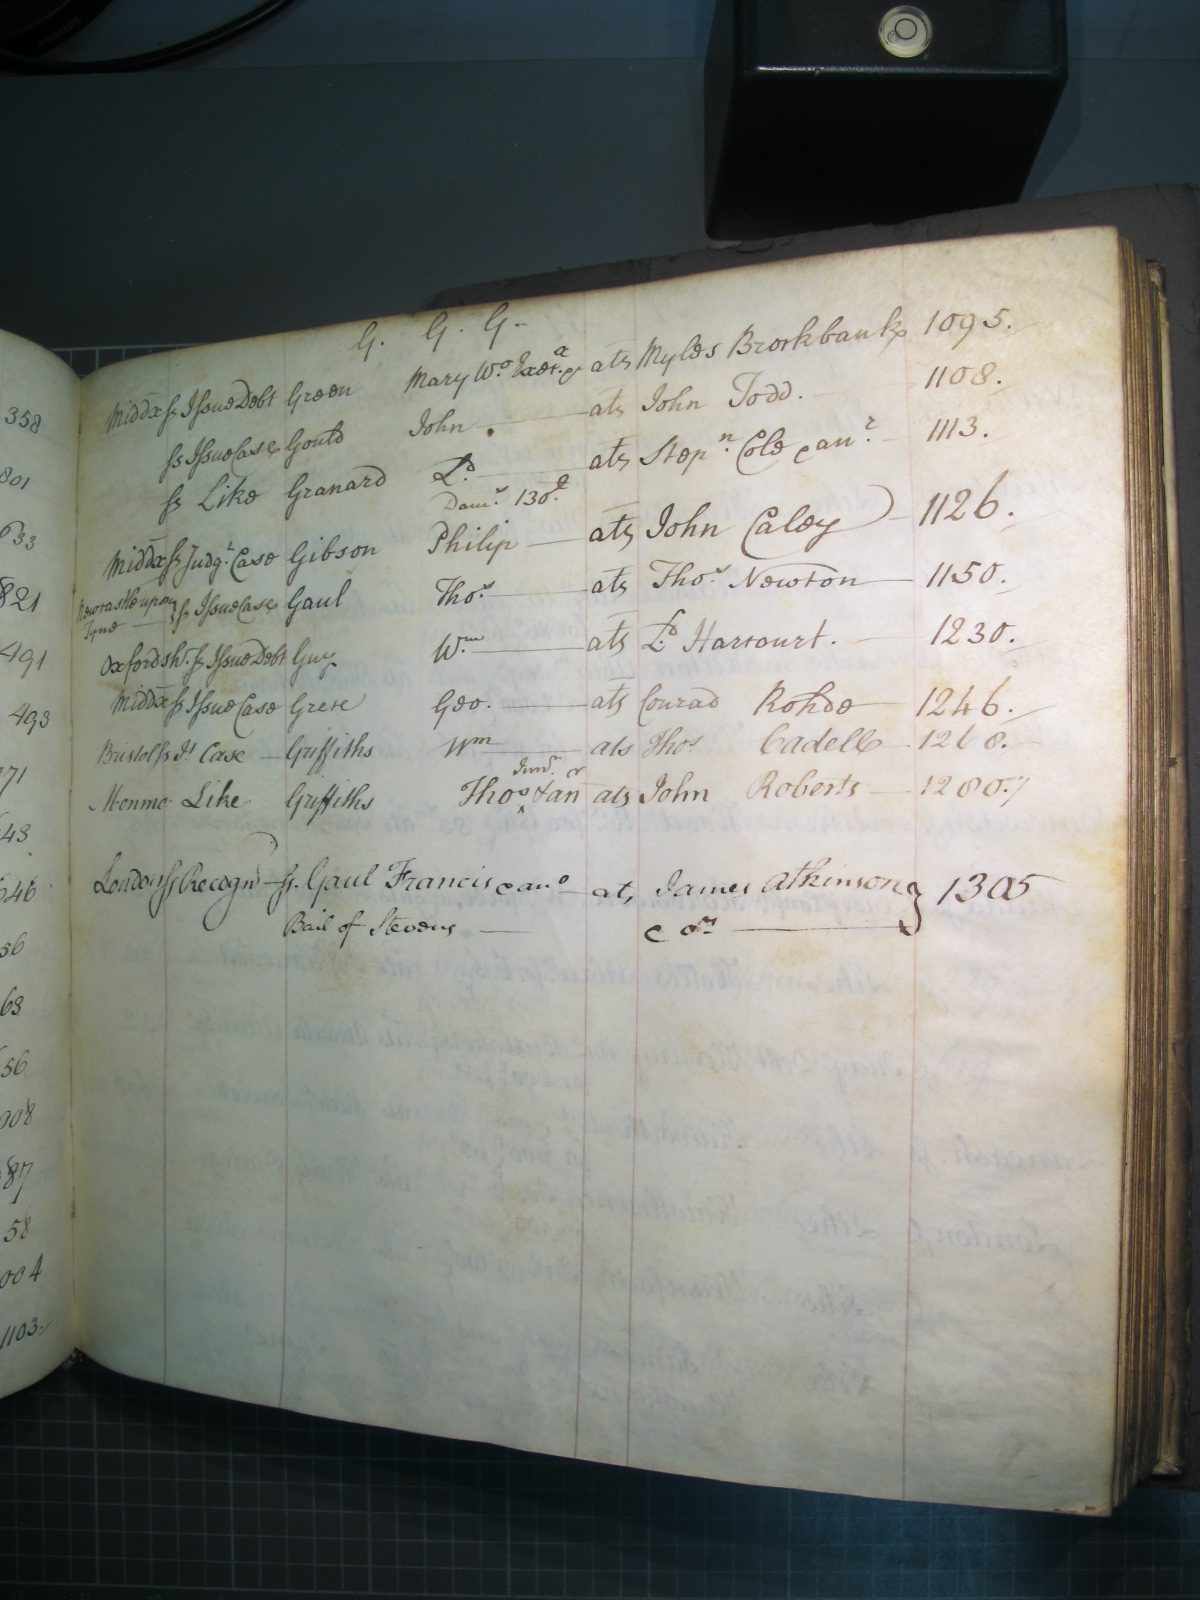 G. G. G.
Middx ss Issue Debt Green Mary Wo. Exor.a & ats Myles Brockbank 1095.
ss Issue Case Gould John ats John Todd. 1108.
ss Like Granard Ld. ats Stepn. Cole & anr. 1113.
Dams. 130£
Middx ss Judgt. Case Gibson Philip ats John Caley 1126.
Newcastle upon Tyne ss Issue Case Gaul Thos. ats Thos. Newton 1150.
Oxfordsh. ss Issue Debt Guy Wm. ats Ld. Harcourt. 1230.
Middx ss Issue Case Grere Geo. ats Conrad Rohde 1246.
Bristol ss Is Case Griffiths Wm ats Thos Cadell 1268.
Monmo. Like Griffiths Thos Junr. & anr ats John Roberts 1280.
London ss Recogn ss. Gaul Francis & ano ats James Atkinson 1305
Bail of Stevens & ors
358
801
633
821
491
493
71
43
646
56
63
56
008
87
58
004
1103.